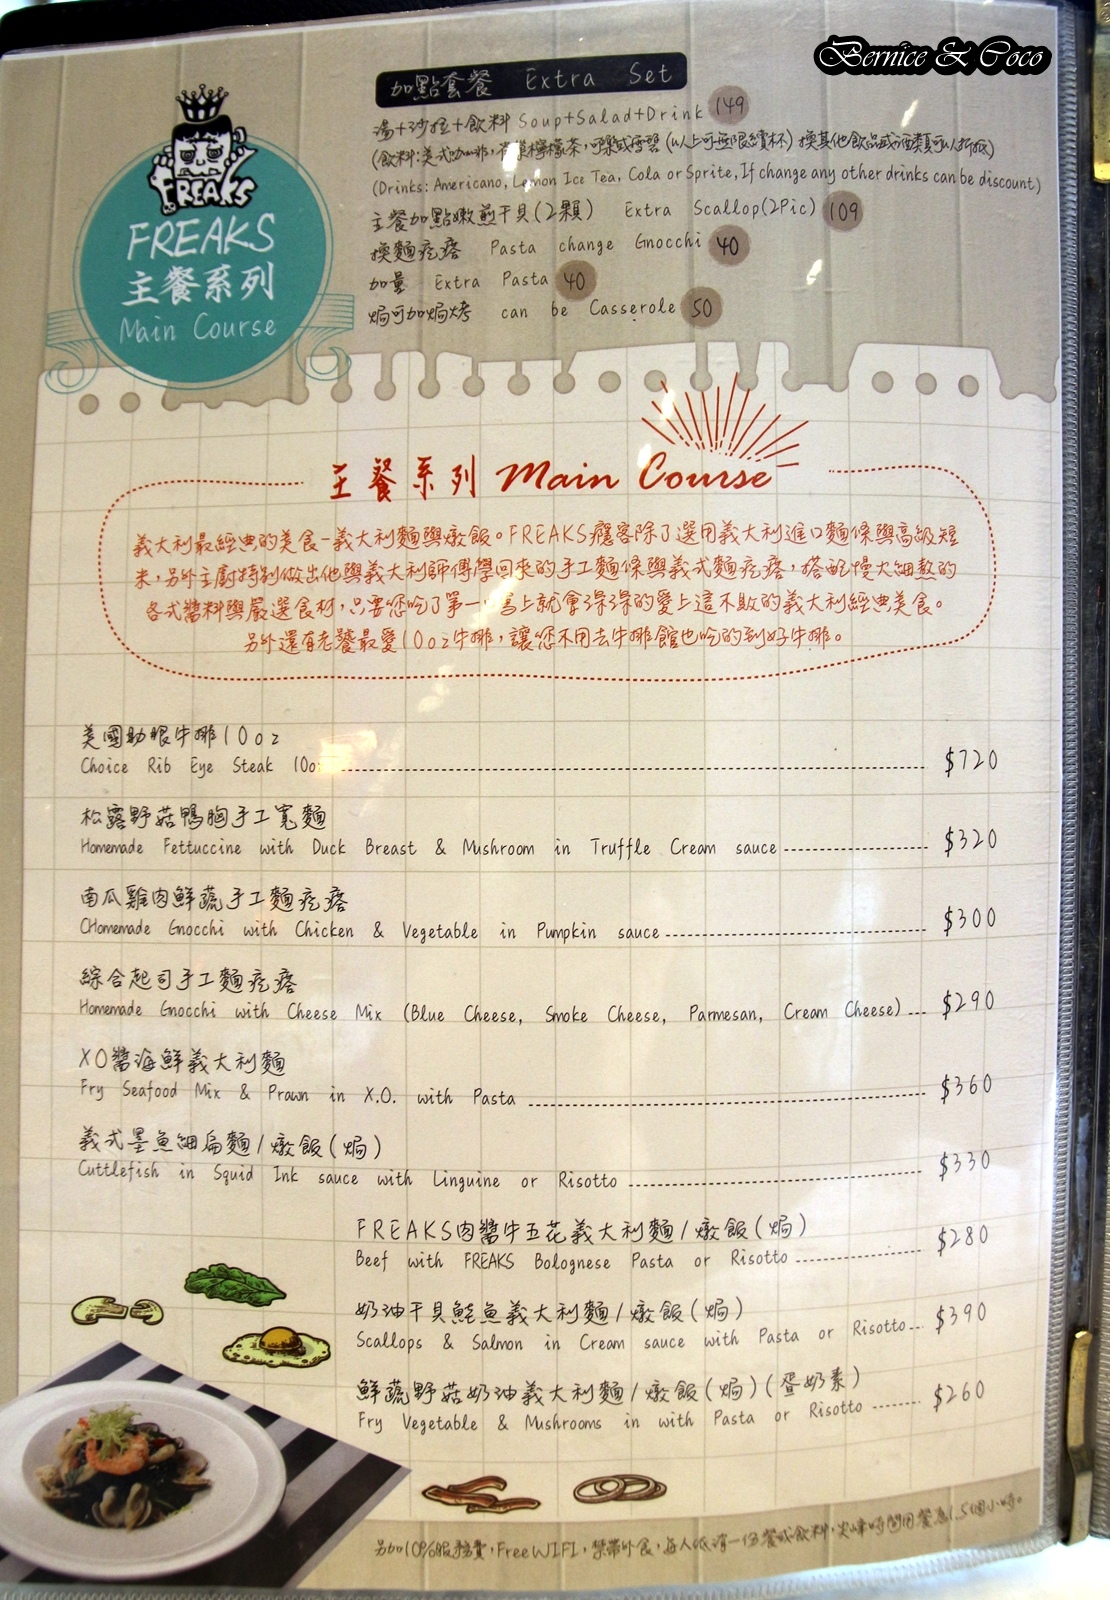 Bernice & Coco
FREAKS
FREAKS
主餐系列
Main Course
加點套餐 Extra Set
湯+沙拉+飲料 Soup+Salad+Drink 149
(飲料:美式咖啡,檸檬茶,可樂或雪碧(以上可無限續杯)換其他飲品或酒類可以折抵)
(Drinks: Americano, Lemon Ice Tea, Cola or Sprite, If change any other drinks can be discount)
主餐加點嫩煎干貝(2顆) Extra Scallop(2Pic) 109
換麵疙瘩 Pasta change Gnocchi 40
加量 Extra Pasta 40
焗可加焗烤 can be Casserole 50
主餐系列 Main Course
義大利最經典的美食-義大利麵與燉飯。FREAKS癮客除了選用義大利進口麵條與高級短
米,另外主廚特別做出他與義大利師傅學回來的手工麵條與義式麵疙瘩,搭配慢火細熬的
各式醬料與嚴選食材,只要您吃了第一口馬上就會深深的愛上這不敗的義大利經典美食。
另外還有老饕最愛10oz牛排,讓您不用去牛排館也吃的到好牛排。
美國肋眼牛排10oz
Choice Rib Eye Steak 10oz $720
松露野菇鴨胸手工寬麵
Homemade Fettuccine with Duck Breast & Mushroom in Truffle Cream sauce $320
南瓜雞肉鮮蔬手工麵疙瘩
CHomemade Gnocchi with Chicken & Vegetable in Pumpkin sauce $300
綜合起司手工麵疙瘩
Homemade Gnocchi with Cheese Mix (Blue Cheese, Smoke Cheese, Parmesan, Cream Cheese) $290
XO醬海鮮義大利麵
Fry Seafood Mix & Prawn in X.O. with Pasta $360
義式墨魚細扁麵/燉飯(焗)
Cuttlefish in Squid Ink sauce with Linguine or Risotto $330
FREAKS肉醬牛五花義大利麵/燉飯(焗)
Beef with FREAKS Bolognese Pasta or Risotto $280
奶油干貝鮭魚義大利麵/燉飯(焗)
Scallops & Salmon in Cream sauce with Pasta or Risotto $390
鮮蔬野菇奶油義大利麵/燉飯(焗)(蛋奶素)
Fry Vegetable & Mushrooms in with Pasta or Risotto $260
另加10%服務費,Free WIFI,禁帶外食,每人低消一份餐或飲料,尖峰時間用餐為1.5個小時。